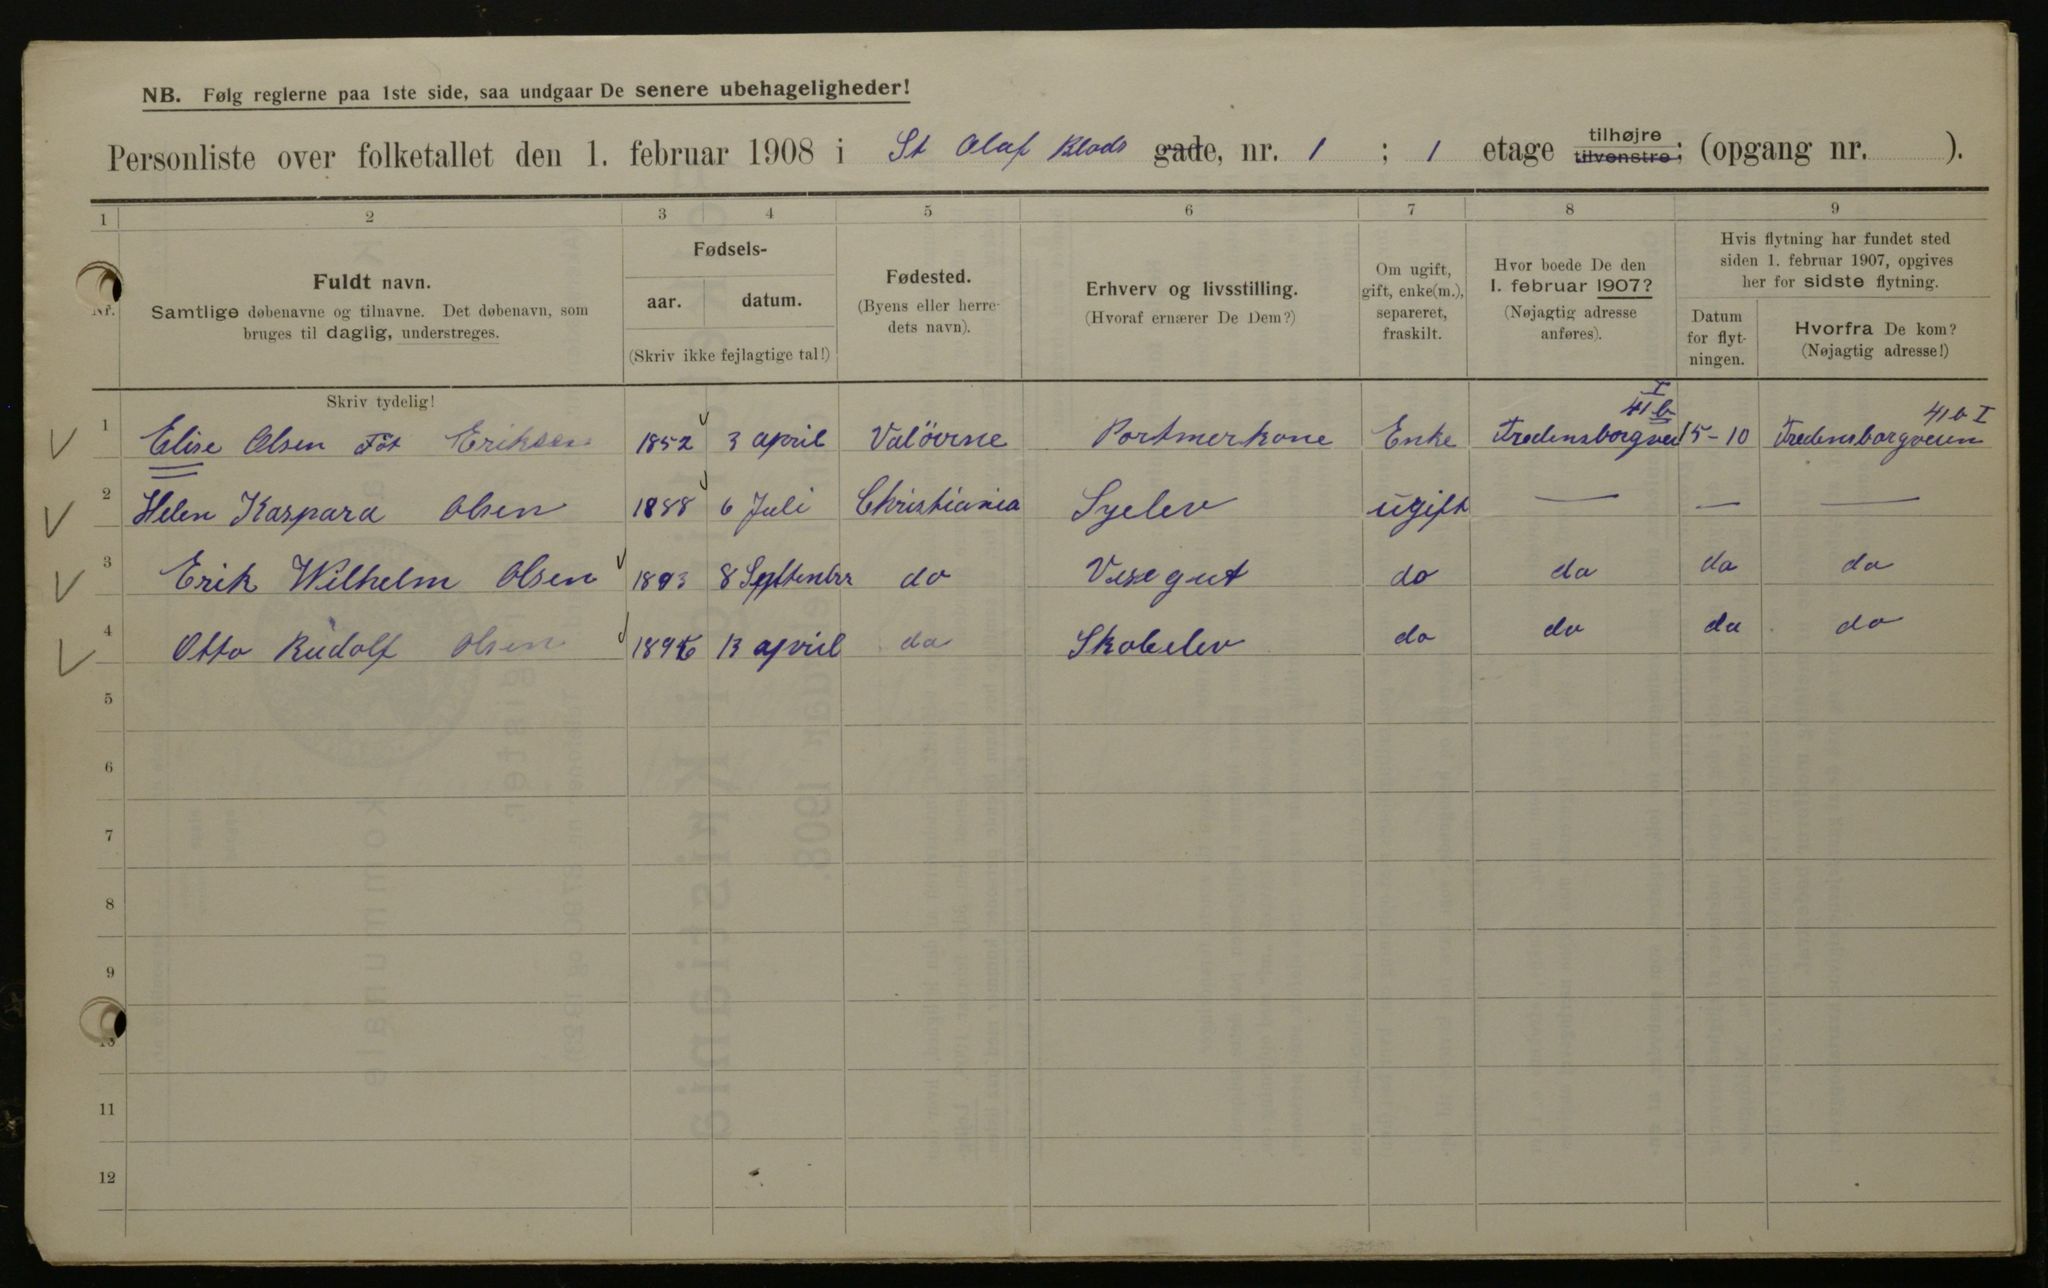 NB. Følg reglerne paa 1ste side, saa undgaar De senere ubehageligheder!
Personliste over folketallet den 1. februar 1908 i St Olaf Klads gade, nr. 1 ; 1 etage tilhøjre tilvenstre; (opgang nr. ).
1 2 3 4 5 6 7 8 9
Nr. Fuldt navn. Samtlige døbenavne og tilnavne. Det døbenavn, som bruges til daglig, understreges. Skriv tydelig!
Fødsels- aar. datum. (Skriv ikke fejlagtige tal!)
Fødested. (Byens eller herredets navn).
Erhverv og livsstilling. (Hvoraf ernærer De Dem?)
Om ugift, gift, enke(m.), separeret, fraskilt.
Hvor boede De den 1. februar 1907? (Nøjagtig adresse anføres).
Hvis flytning har fundet sted siden 1. februar 1907, opgives her for sidste flytning.
Datum for flytningen. Hvorfra De kom? (Nøjagtig adresse!)
1 Elise Olsen Föt Eriksen 1852 3 april Valöerne Portnerkone Enke Fredensborgvei 41b I 15-10 Fredensborgveien 41 b I
2 Helen Kaspara Olsen 1888 6 Juli Christiania Syelev ugift — — —
3 Erik Wilhelm Olsen 1893 8 September do Visegut do do do do
4 Otto Rudolf Olsen 1896 13 april do Skolelev do do do do
5
6
7
8
9
10
11
12